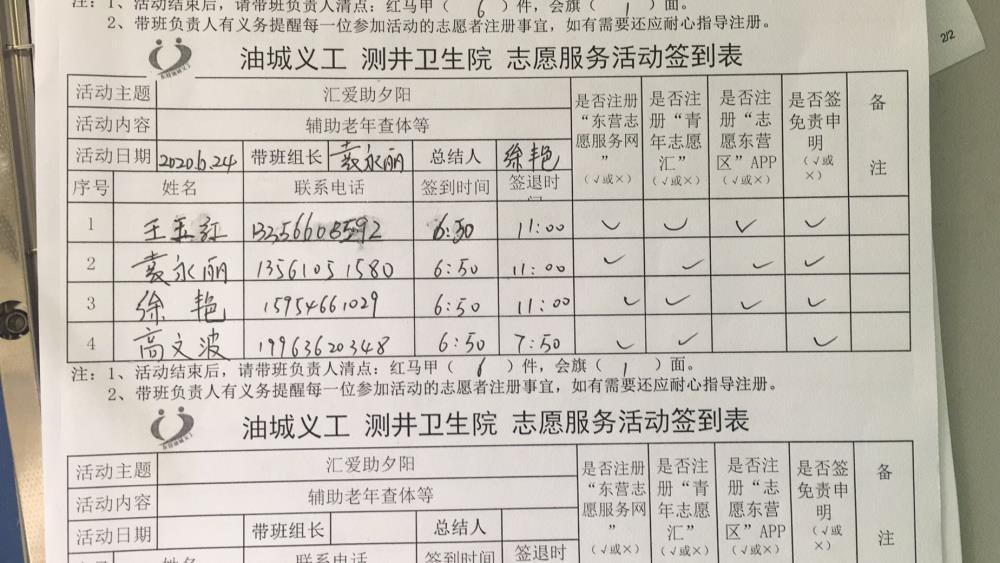 注：1、活动结束后，请带班负责人清点：红马甲（ 6 ）件，会旗（ 1 ）面。
2、带班负责人有义务提醒每一位参加活动的志愿者注册事宜，如有需要还应耐心指导注册。
212
油城义工 测井卫生院 志愿服务活动签到表
活动主题 汇爱助夕阳 是否注册“东营志愿服务网”（√或×） 是否注册“青年志愿汇”（√或×） 是否注册“志愿东营区”APP（√或×） 是否签免责申明（√或×） 备注
活动内容 辅助老年查体等
活动日期 2020.6.24 带班组长 袁永丽 总结人 徐艳
序号 姓名 联系电话 签到时间 签退时间
1 王玉红 13356608592 6:30 11:00 ✓ ✓ ✓ ✓
2 袁永丽 13561051580 6:50 11:00 ✓ ✓ ✓ ✓
3 徐艳 15954661029 6:50 11:00 ✓ ✓ ✓ ✓
4 高文波 19963620348 6:50 7:50 ✓ ✓
注：1、活动结束后，请带班负责人清点：红马甲（ 6 ）件，会旗（ 1 ）面。
2、带班负责人有义务提醒每一位参加活动的志愿者注册事宜，如有需要还应耐心指导注册。
油城义工 测井卫生院 志愿服务活动签到表
活动主题 汇爱助夕阳 是否注册“东营志愿服务网”（√或×） 是否注册“青年志愿汇”（√或×） 是否注册“志愿东营区”APP（√或×） 是否签免责申明（√或×） 备注
活动内容 辅助老年查体等
活动日期 带班组长 总结人
序号 姓名 联系电话 签到时间 签退时